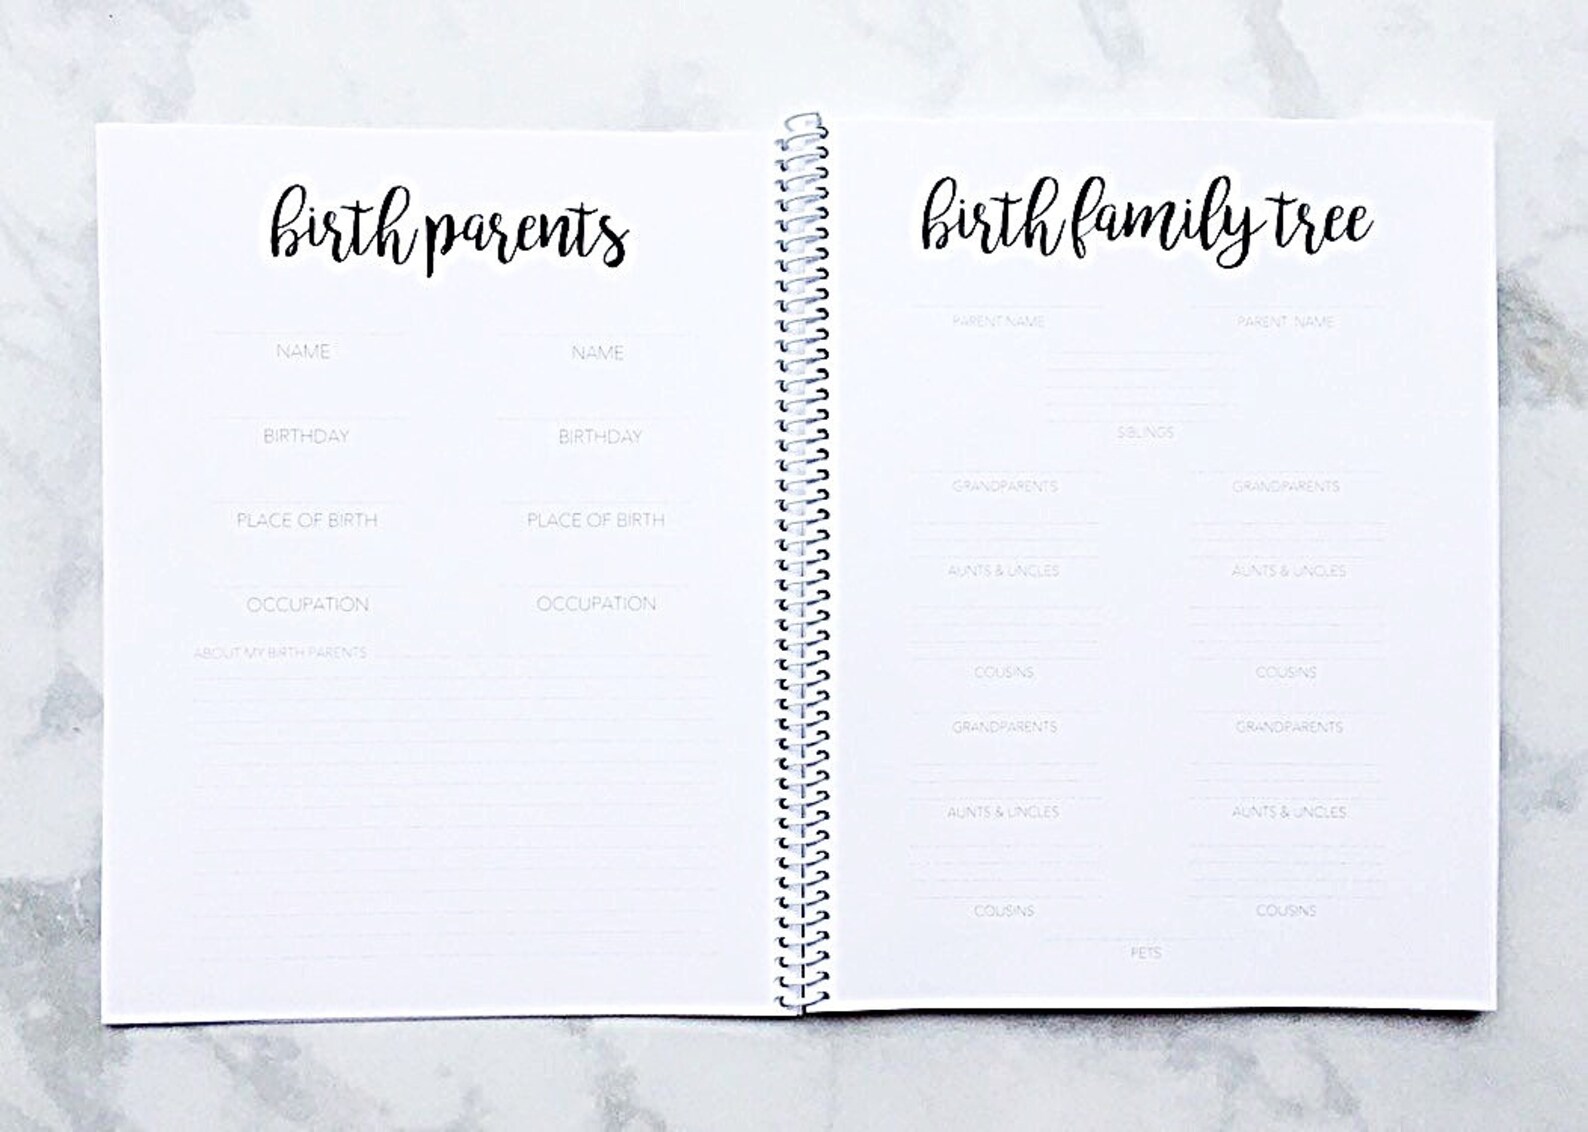 birth parents
NAME NAME
BIRTHDAY BIRTHDAY
PLACE OF BIRTH PLACE OF BIRTH
OCCUPATION OCCUPATION
ABOUT MY BIRTH PARENTS
birth family tree
PARENT NAME PARENT NAME
SIBLINGS
GRANDPARENTS GRANDPARENTS
AUNTS & UNCLES AUNTS & UNCLES
COUSINS COUSINS
GRANDPARENTS GRANDPARENTS
AUNTS & UNCLES AUNTS & UNCLES
COUSINS COUSINS
PETS